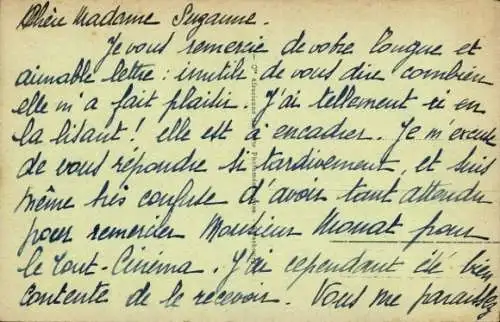 Chère Madame Suzanne.
Je vous remercie de votre longue et
aimable lettre : inutile de vous dire combien
elle m'a fait plaisir. J'ai tellement ri en
la lisant ! elle est à encadrer. Je m'excuse
de vous répondre si tardivement, et suis
même très confuse d'avoir tant attendu
pour remercier Monsieur Monat pour
le Tout-Cinéma. J'ai cependant été bien
contente de le recevoir. Vous me paraissez